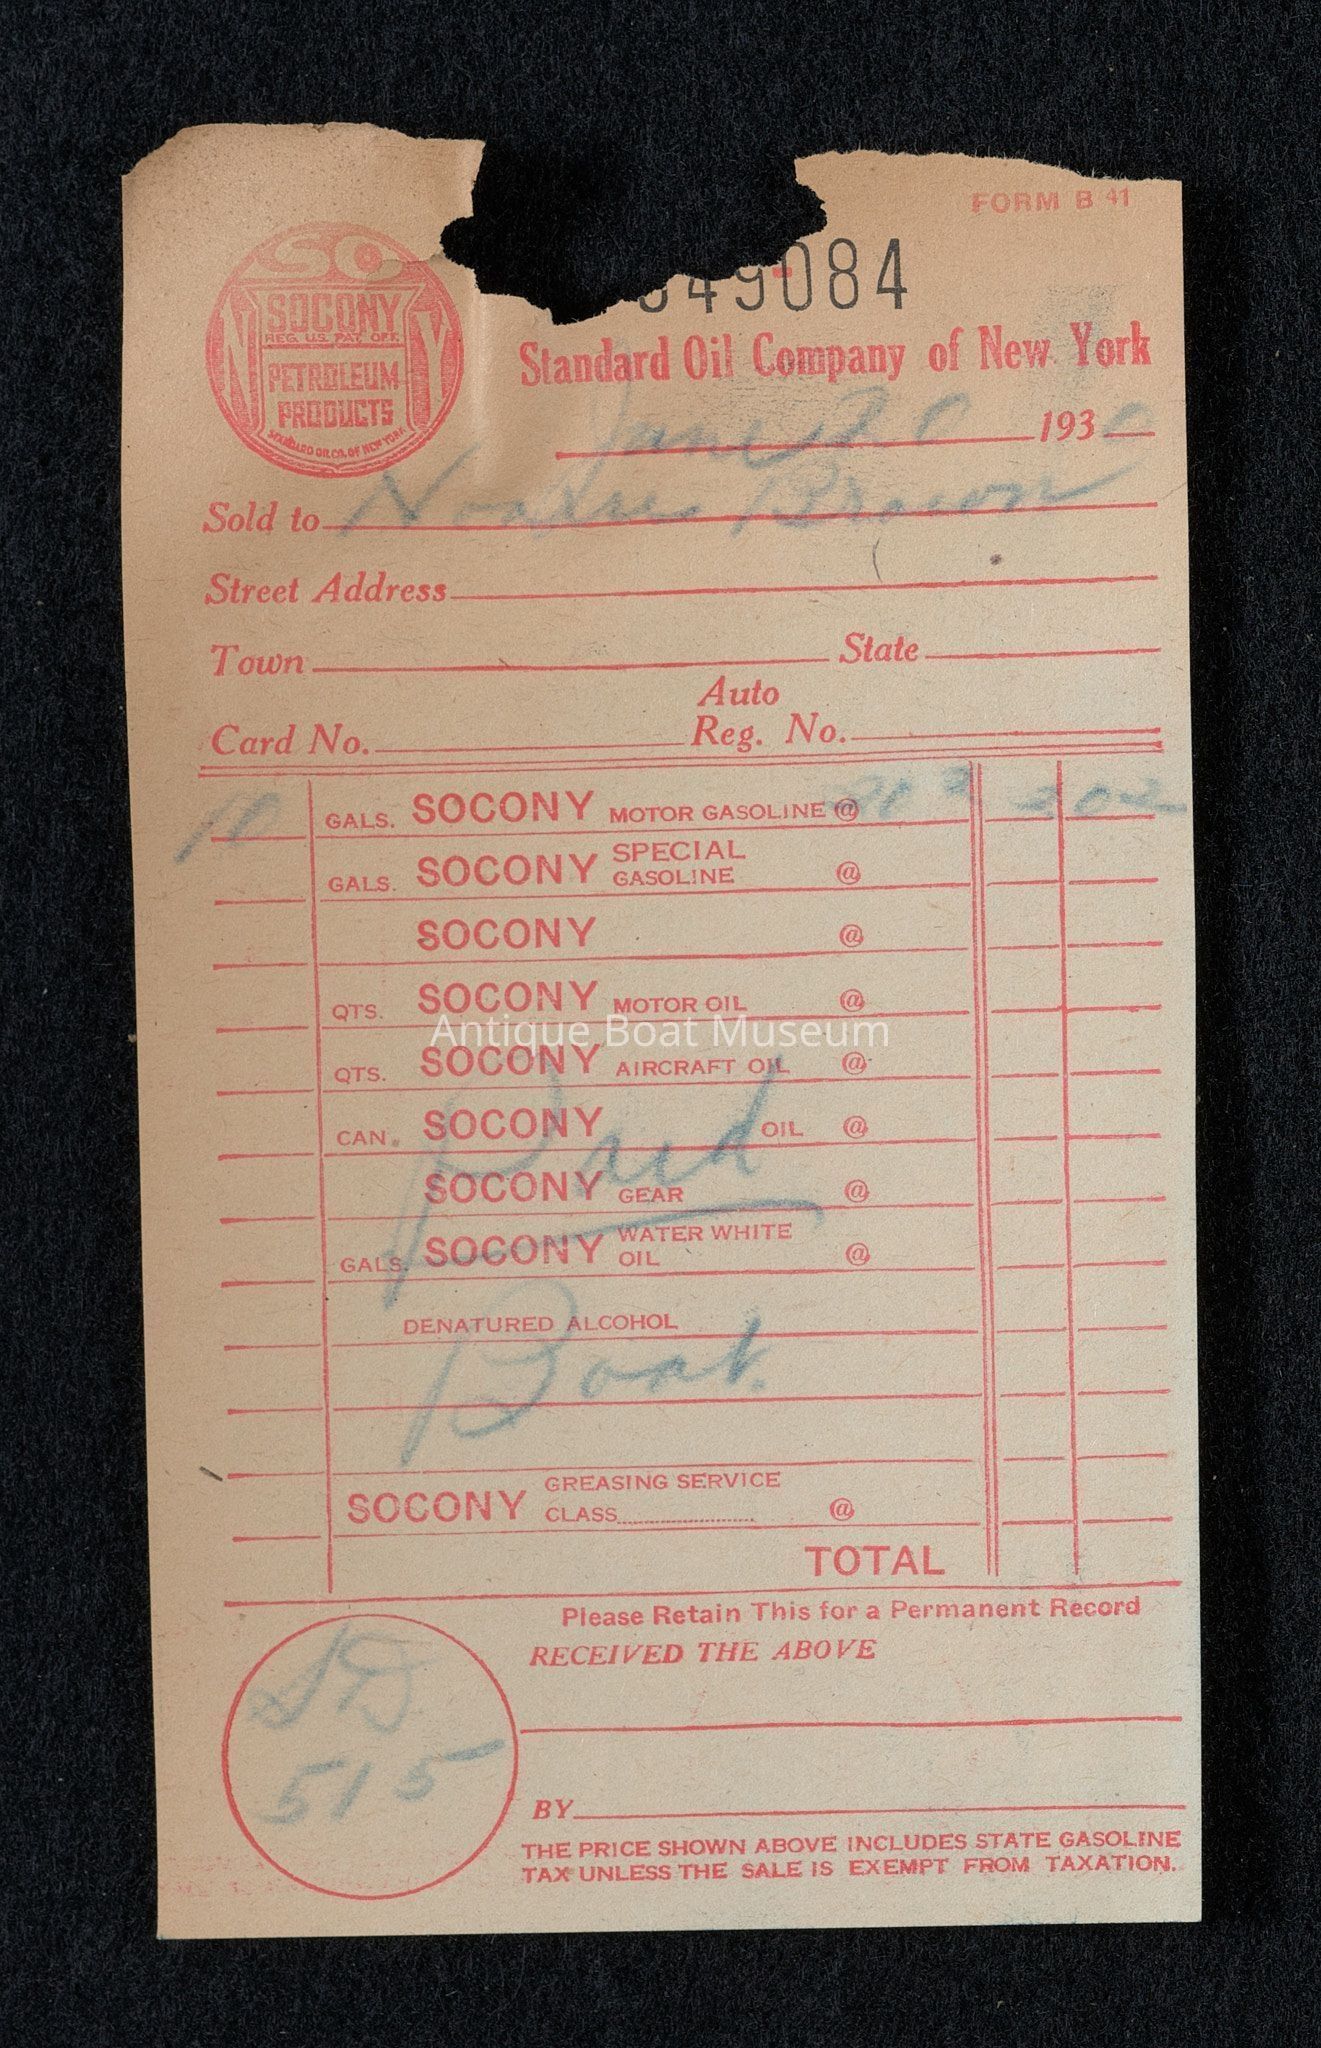 FORM B 41
49-084
SO
NY
SOCONY
REG. U.S. PAT. OFF.
PETROLEUM
PRODUCTS
STANDARD OIL CO. OF NEW YORK
Standard Oil Company of New York
June 20 1930
Sold to Brown
Street Address
Town State
Auto
Card No. Reg. No.
10 GALS. SOCONY MOTOR GASOLINE @ 20 2 2 02
SPECIAL
GALS. SOCONY GASOLINE @
SOCONY @
QTS. SOCONY MOTOR OIL @
Antique Boat Museum
QTS. SOCONY AIRCRAFT OIL @
CAN. SOCONY OIL @
Paid
SOCONY GEAR @
WATER WHITE
GALS. SOCONY OIL @
DENATURED ALCOHOL
Boat.
GREASING SERVICE
SOCONY CLASS @
TOTAL
Please Retain This for a Permanent Record
RECEIVED THE ABOVE
SD
515
BY
THE PRICE SHOWN ABOVE INCLUDES STATE GASOLINE
TAX UNLESS THE SALE IS EXEMPT FROM TAXATION.